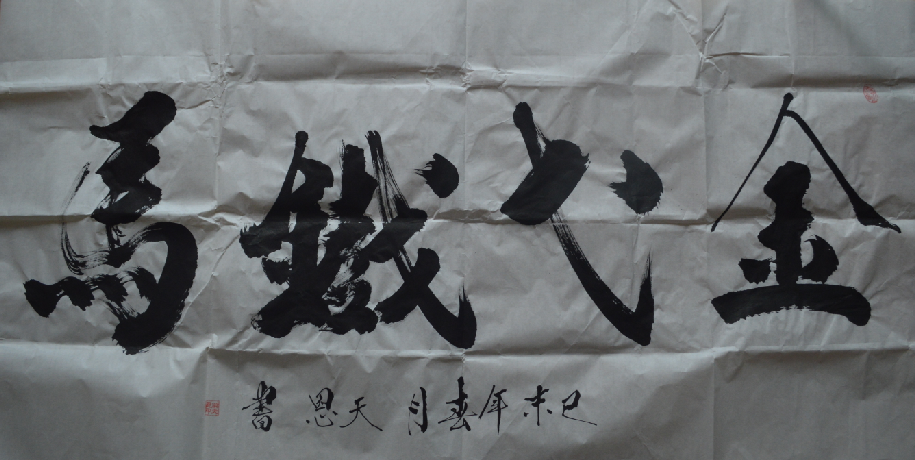 金戈鐵馬
己未年春月天恩書